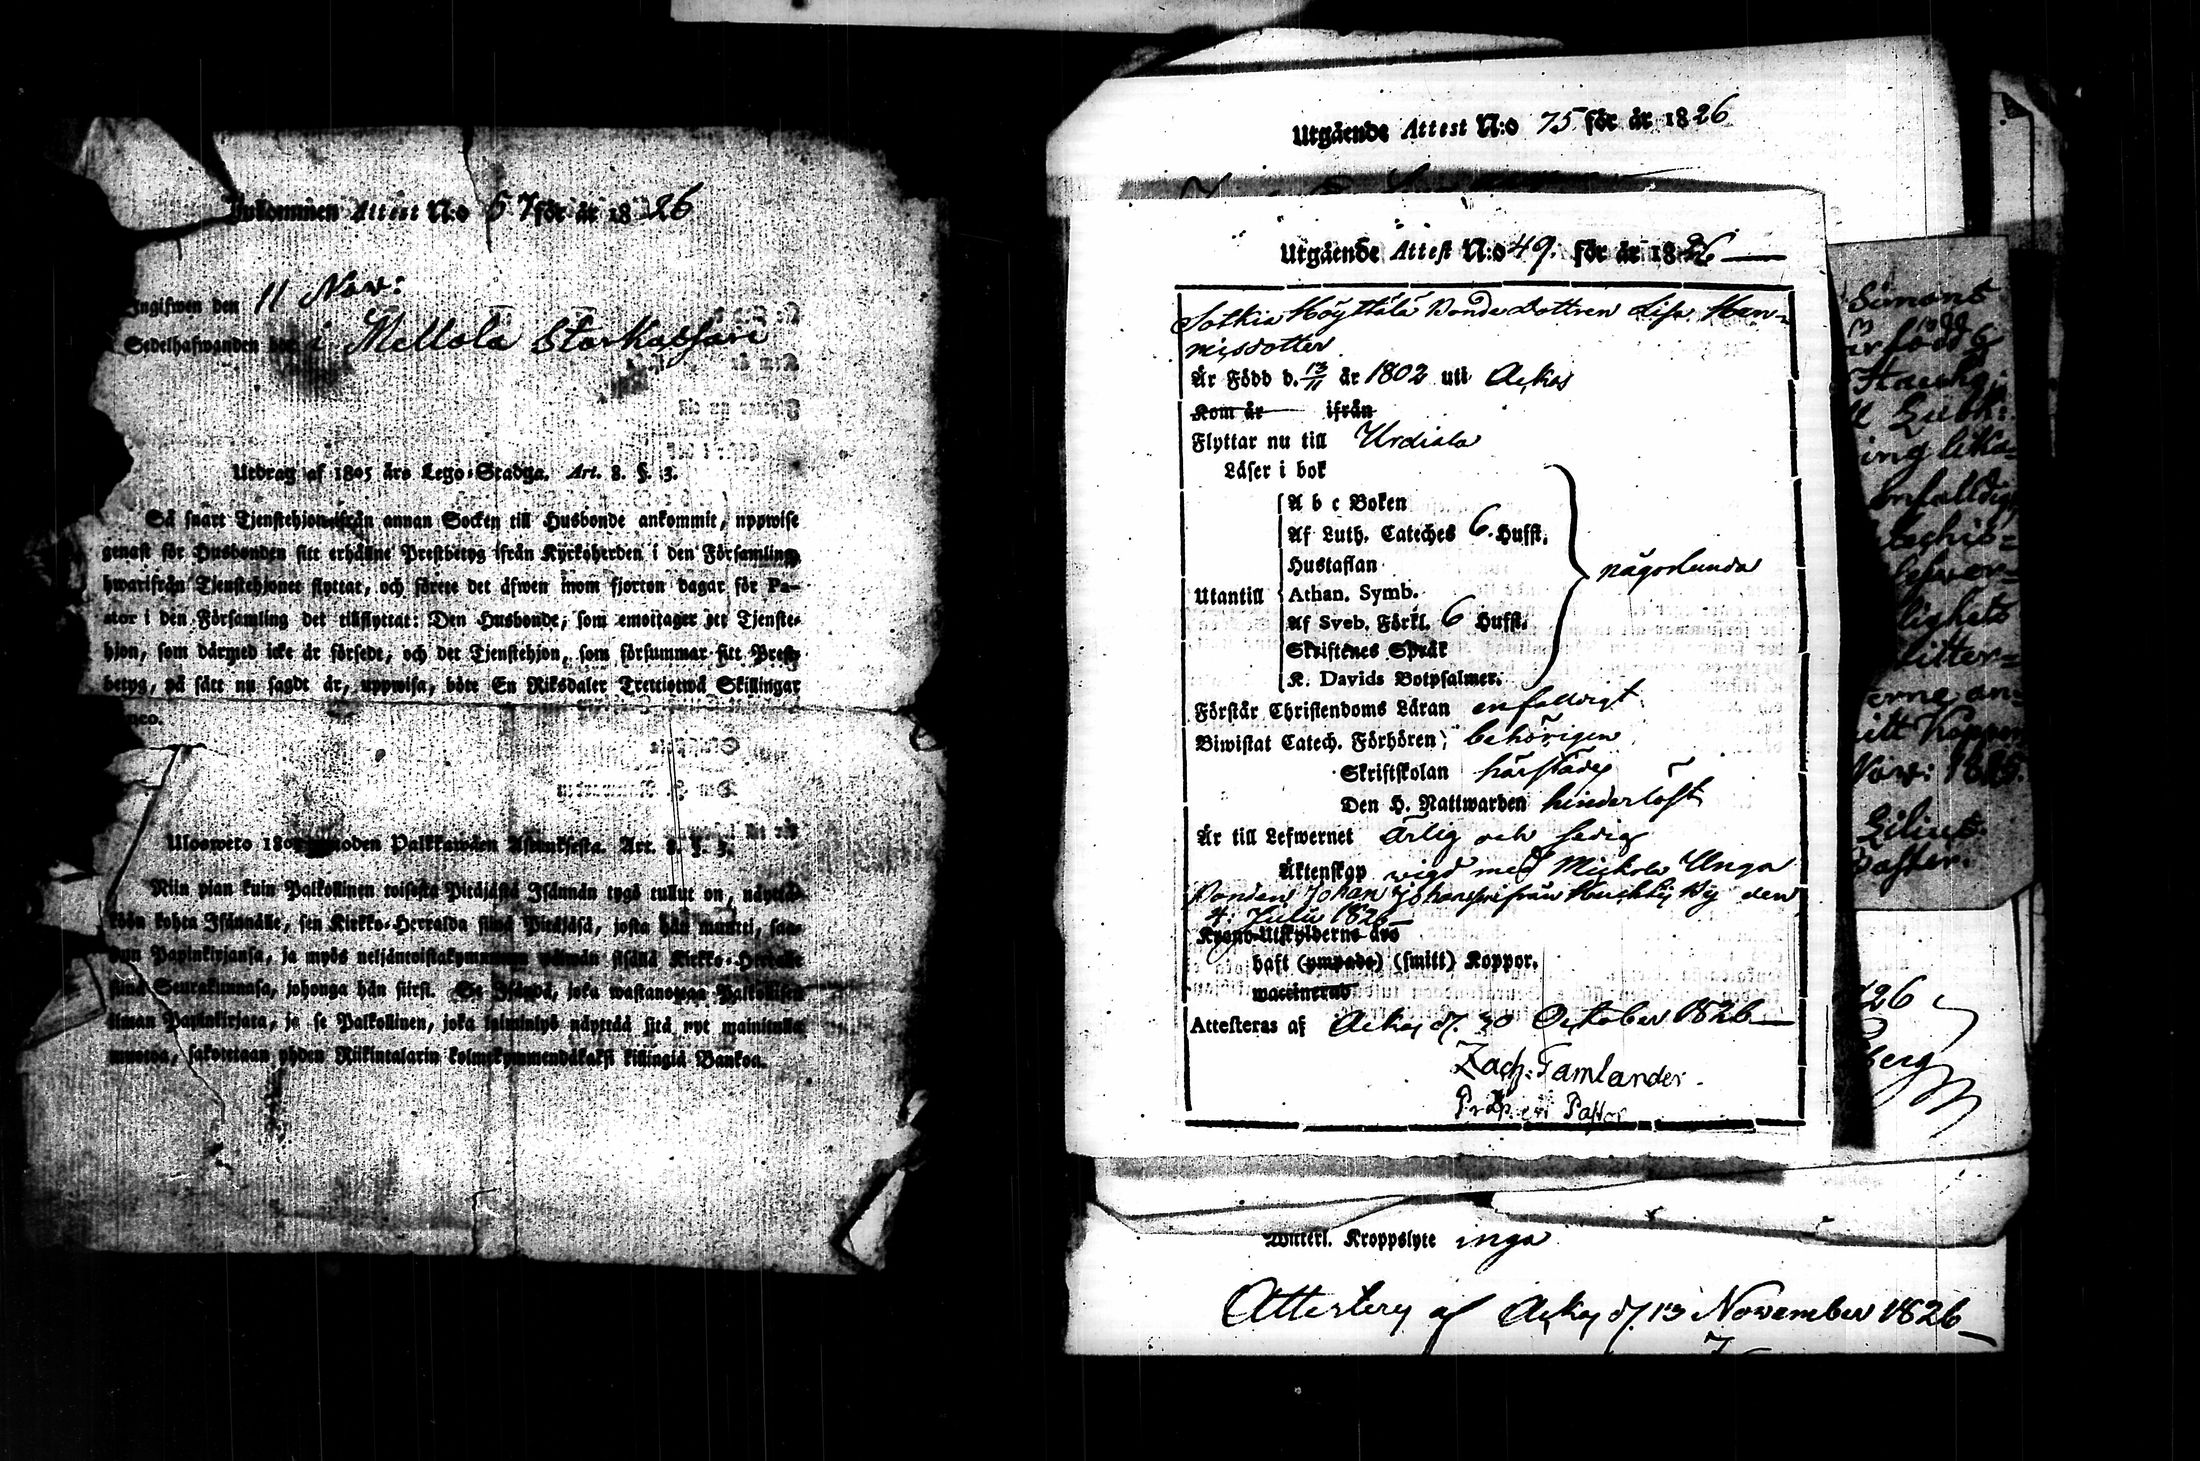 Inkommen Attest N:o 67 för år 1826
Ingifwen den 11 Nov:
Sedelhafwanden i Mellola Storkassari
Utdrag af 1805 års Lego-Stadga. Art. 8. §. 3.
Så snart Tjenstehjon ifrån annan Socken till Husbonde ankommit, uppwise
genast för Husbonden sitt erhållne Prestbetyg ifrån Kyrkoherden i den Församling
hwarifrån Tjenstehjonet flyttat, och förete det äfwen inom fjorton dagar för Pa-
stor i den Församling det tillflyttat: Den Husbonde, som emottager ett Tjenste-
hjon, som därmed icke är försedt, och det Tjenstehjon, som försummar sitt Prest-
betyg, på sätt nu sagdt är, uppwisa, böte En Riksdaler Trettiotwå Skillingar
Banco.
Uloswero 180 wuoden Palkkawäen Asetuksesta. Art. 8. §. 3.
Niin pian kuin Palkollinen toisesta Pitäjästä Isännän tygö tullut on, näyttä-
köön kohta Isännälle, sen Kirkko-Herralda siinä Pitäjäsä, josta hän muutti, saa-
dun Papinkirjansa, ja myös neljäntoistakymmenen päiwän sisänä Kirkko-Herralle
siinä Seurakunnasa, johonga hän siirsi. Se Isändä, joka wastanottaa Palkollisen
ilman Papinkirjata, ja se Palkollinen, joka laiminlyö näyttää sitä nyt mainitulla
muotoa, sakotetaan yhden Riikintalarin kolmekymmendäkaksi killingiä Bankoa.
Utgående Attest N:o 75 för år 1826
Utgående Attest N:o 49. för år 1826
Sotkia Höyttälä Bonde Dottren Lisa Hen-
ricsdotter
Är Född d. 13/11 år 1802 uti Ackas
Kom år ifrån
Flyttar nu till Urdiala
Läser i bok
A b c Boken
Af Luth. Cateches 6. Hufst.
Hustaflan
någorlunda
Utantill Athan. Symb.
Af Sveb. Förkl. 6 Hufst.
Skriftenes Språk
K. Davids Botpsalmer.
Förstår Christendoms Läran enfalldigt
Biwistat Catech. Förhören behörigen
Skriftskolan härstädes
Den H. Nattwarden hinderlöst
Är till Lefwernet ärlig och sedig
Äktenskap vigd med Mickola Unga
Bonden Johan Johansson ifrån Huchtis By den
4: Julii 1826
Krono-Utskylderne äro
haft (ympade) (smitt) Koppor.
waccinerad
Attesteras af Ackas d. 30 October 1826
Zach: Tamlander
Præp. et Pastor
Simons
är född 6
enfalldig
Nov: 1825.
Pastor.
26
berg
Witterl. Kroppslyte inga
Attesteras af Ackas d. 13 November 1826